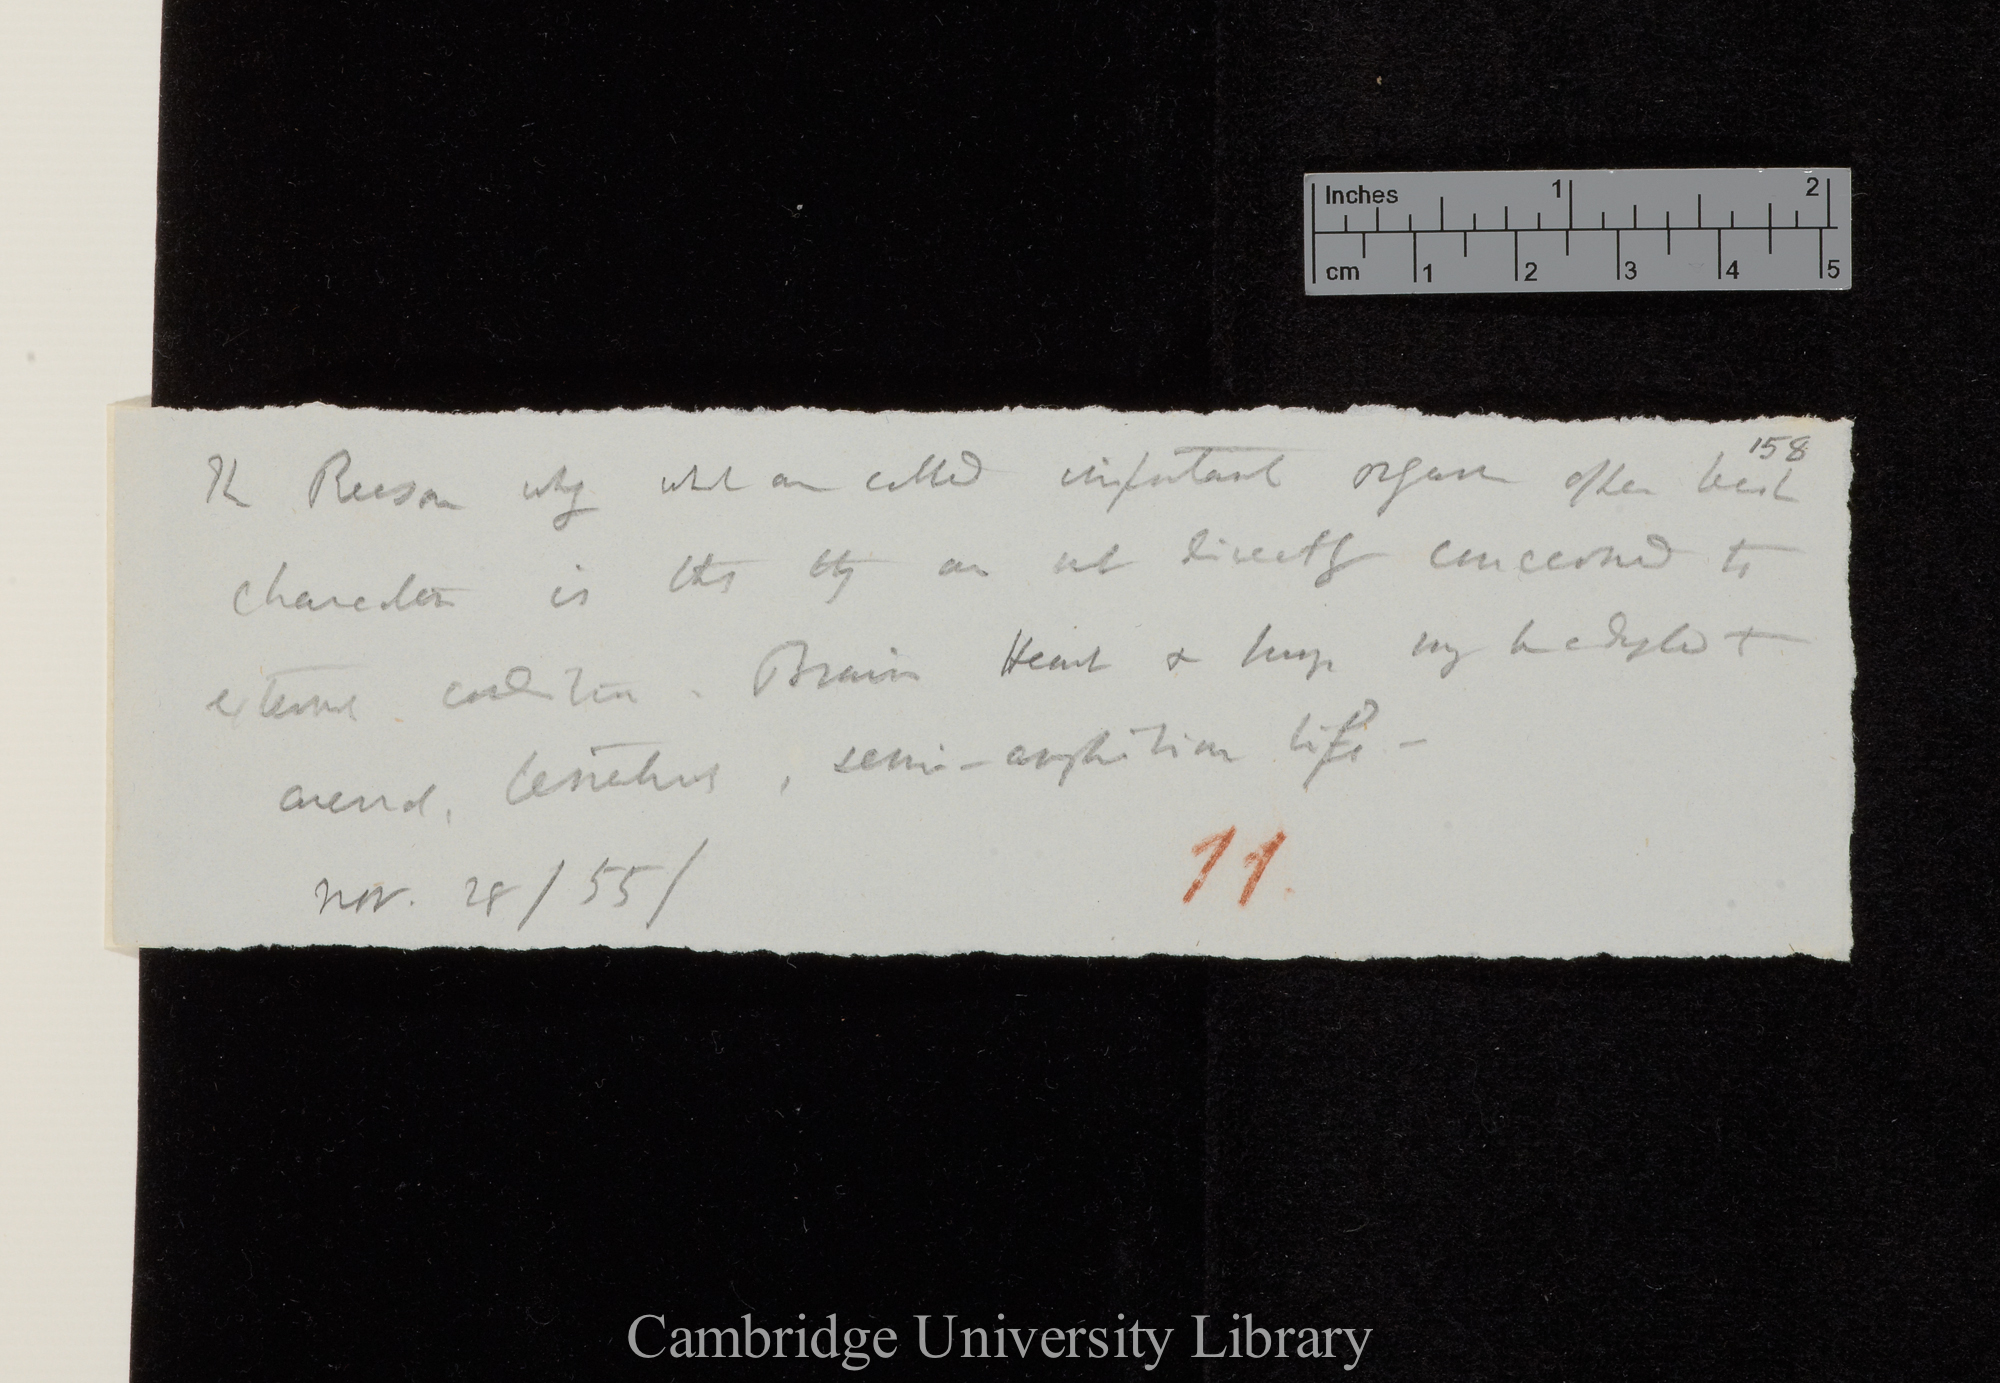 Inches 1 2
cm 1 2 3 4 5
158
The Reason why what are called important organs often best
characters is that they are not directly concerned to
external conditions. Brain Heart & lungs may be adapted to
aerial, terrestrial, semi-amphibian life –
Nov. 28/55/
11.
Cambridge University Library